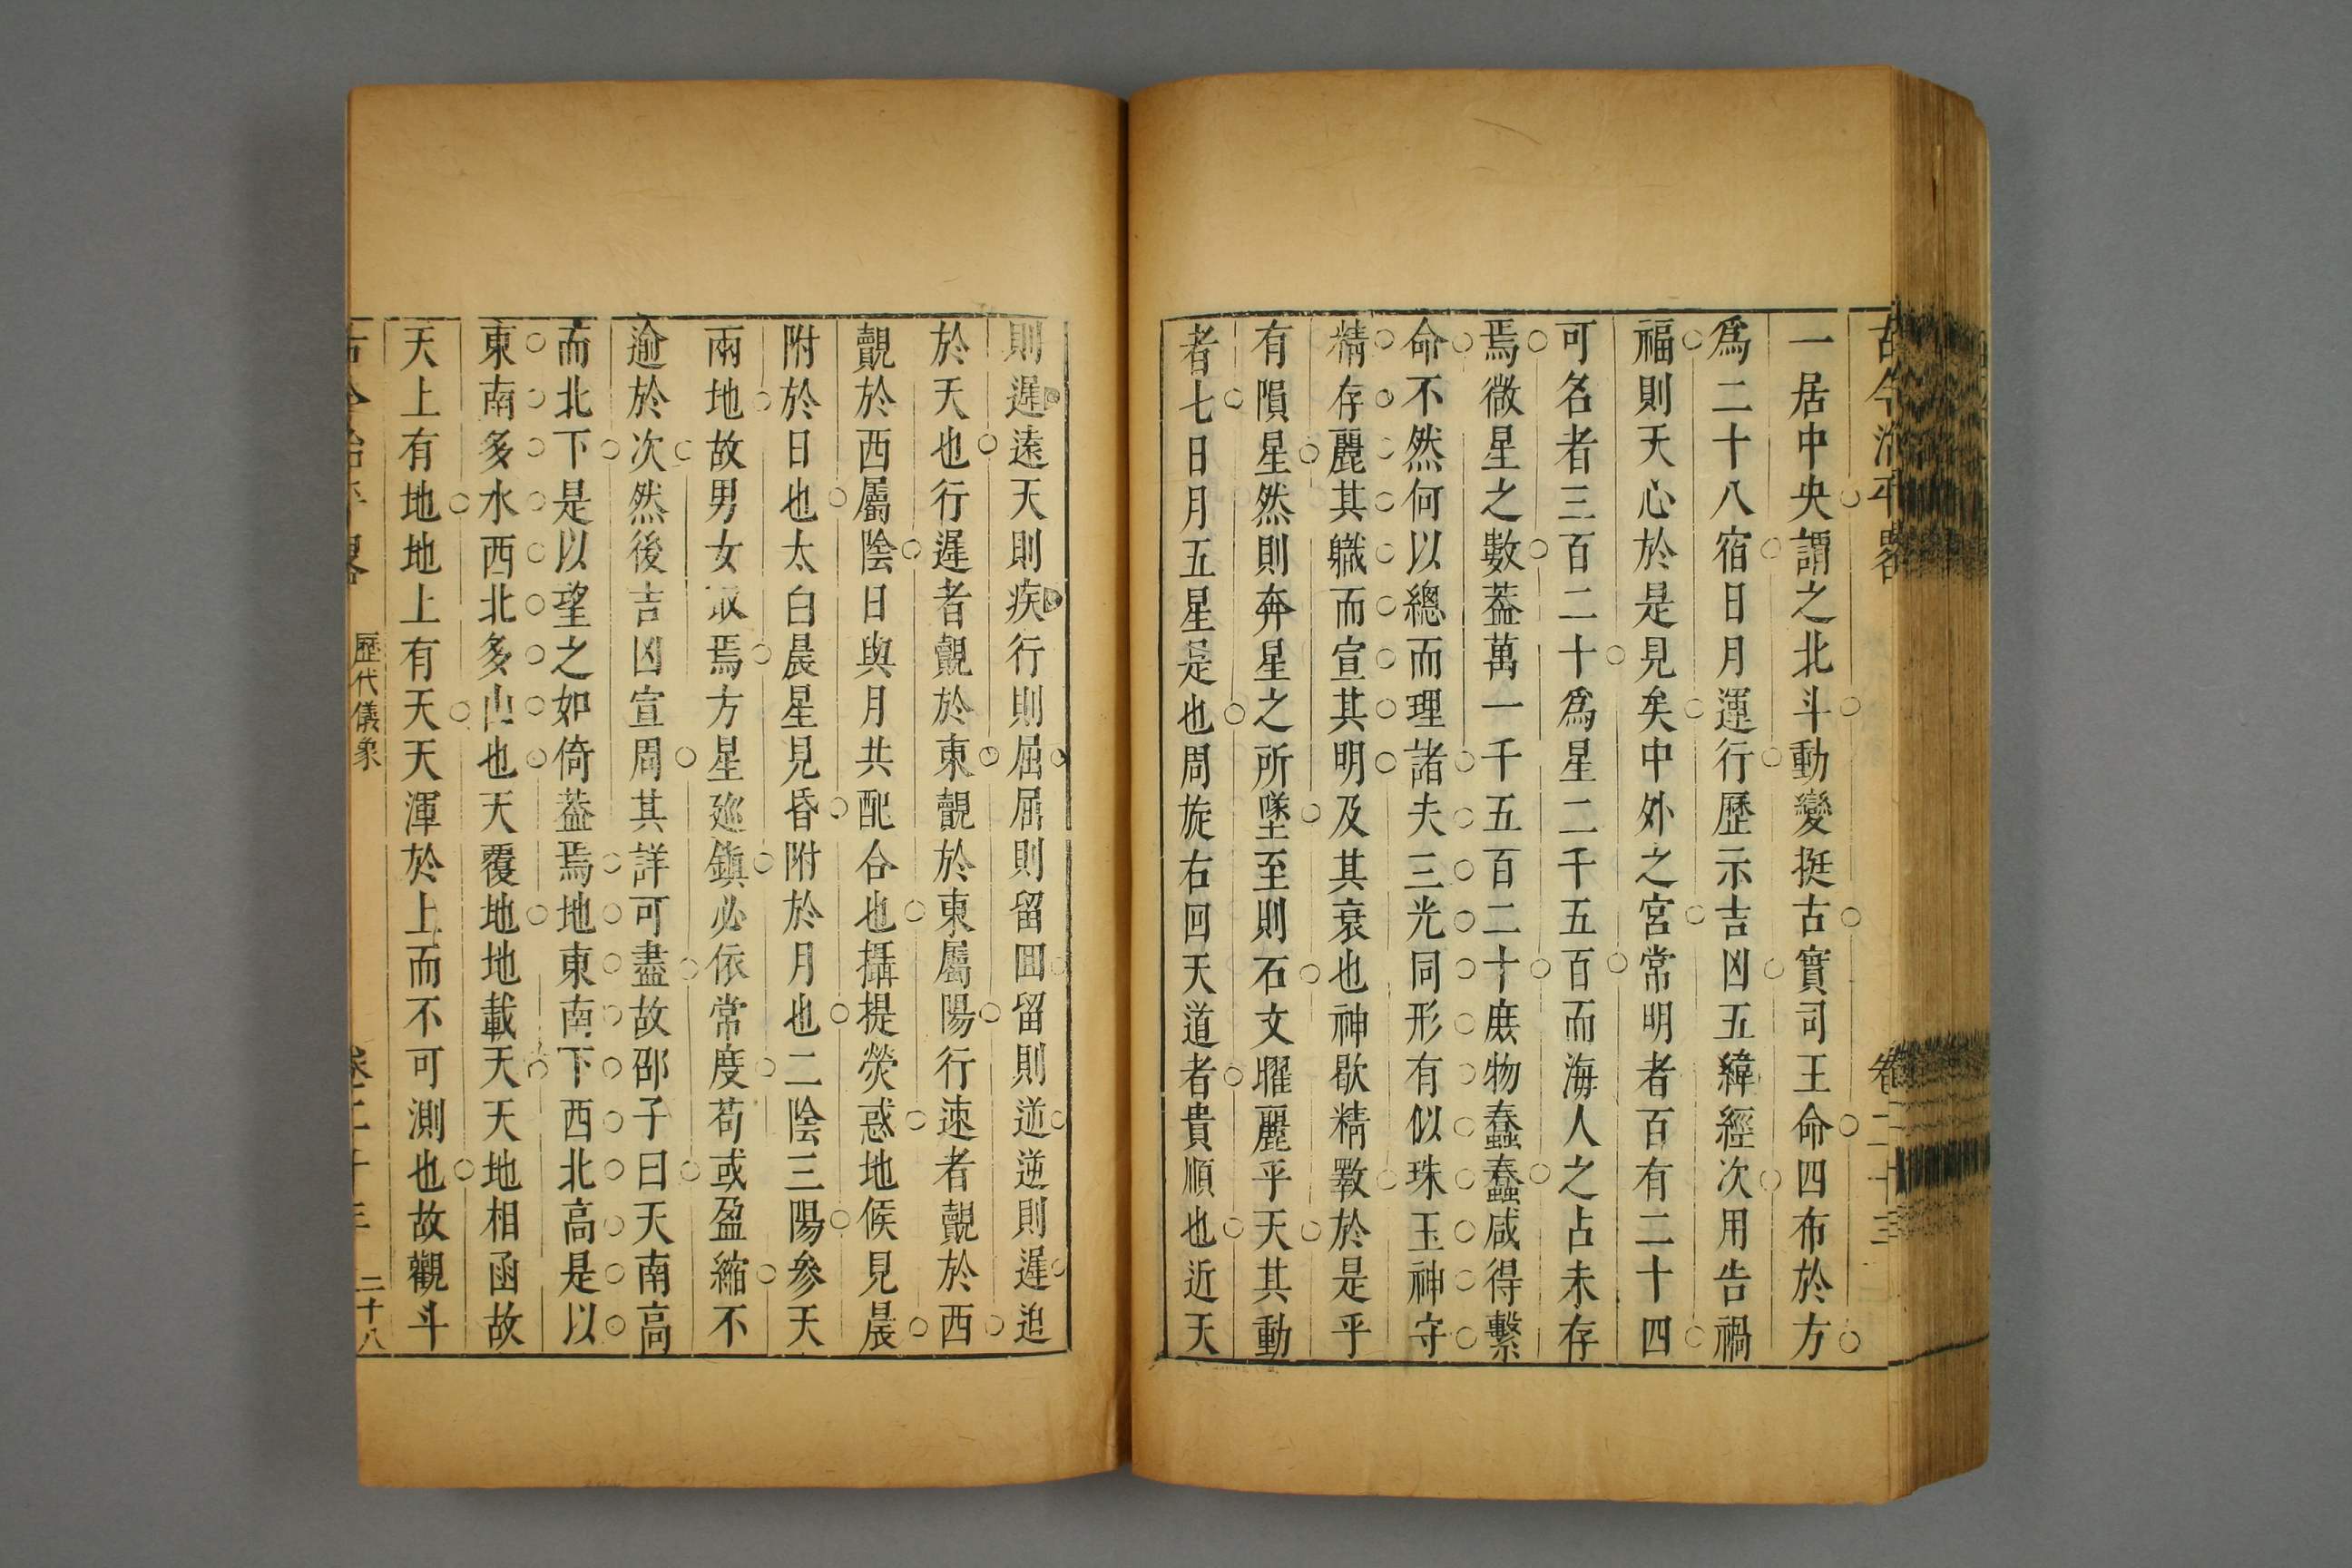 古今治平畧 卷二十三
一居中央謂之北斗動變挺古實司王命四布於方
爲二十八宿日月運行歷示吉凶五緯經次用告禍
福則天心於是見矣中外之宮常明者百有二十四
可名者三百二十爲星二千五百而海人之占未存
焉微星之數葢萬一千五百二十庶物蠢蠢咸得繫
命不然何以總而理諸夫三光同形有似珠玉神守
精存麗其職而宣其明及其衰也神歇精斁於是乎
有隕星然則奔星之所墜至則石文曜麗乎天其動
者七日月五星是也周旋右回天道者貴順也近天
則遲遠天則疾行則屈屈則留回留則逆逆則遲追
於天也行遲者覿於東覿於東屬陽行速者覿於西
覿於西屬陰日與月共配合也攝提熒惑地候見晨
附於日也太白晨星見昏附於月也二陰三陽參天
兩地故男女取焉方星廵鎮必依常度苟或盈縮不
逾於次然後吉凶宣周其詳可盡故邵子曰天南高
而北下是以望之如倚葢焉地東南下西北高是以
東南多水西北多山也天覆地地載天天地相函故
天上有地地上有天天渾於上而不可測也故觀斗
古今治平畧 歷代儀象 卷二十三 二十八